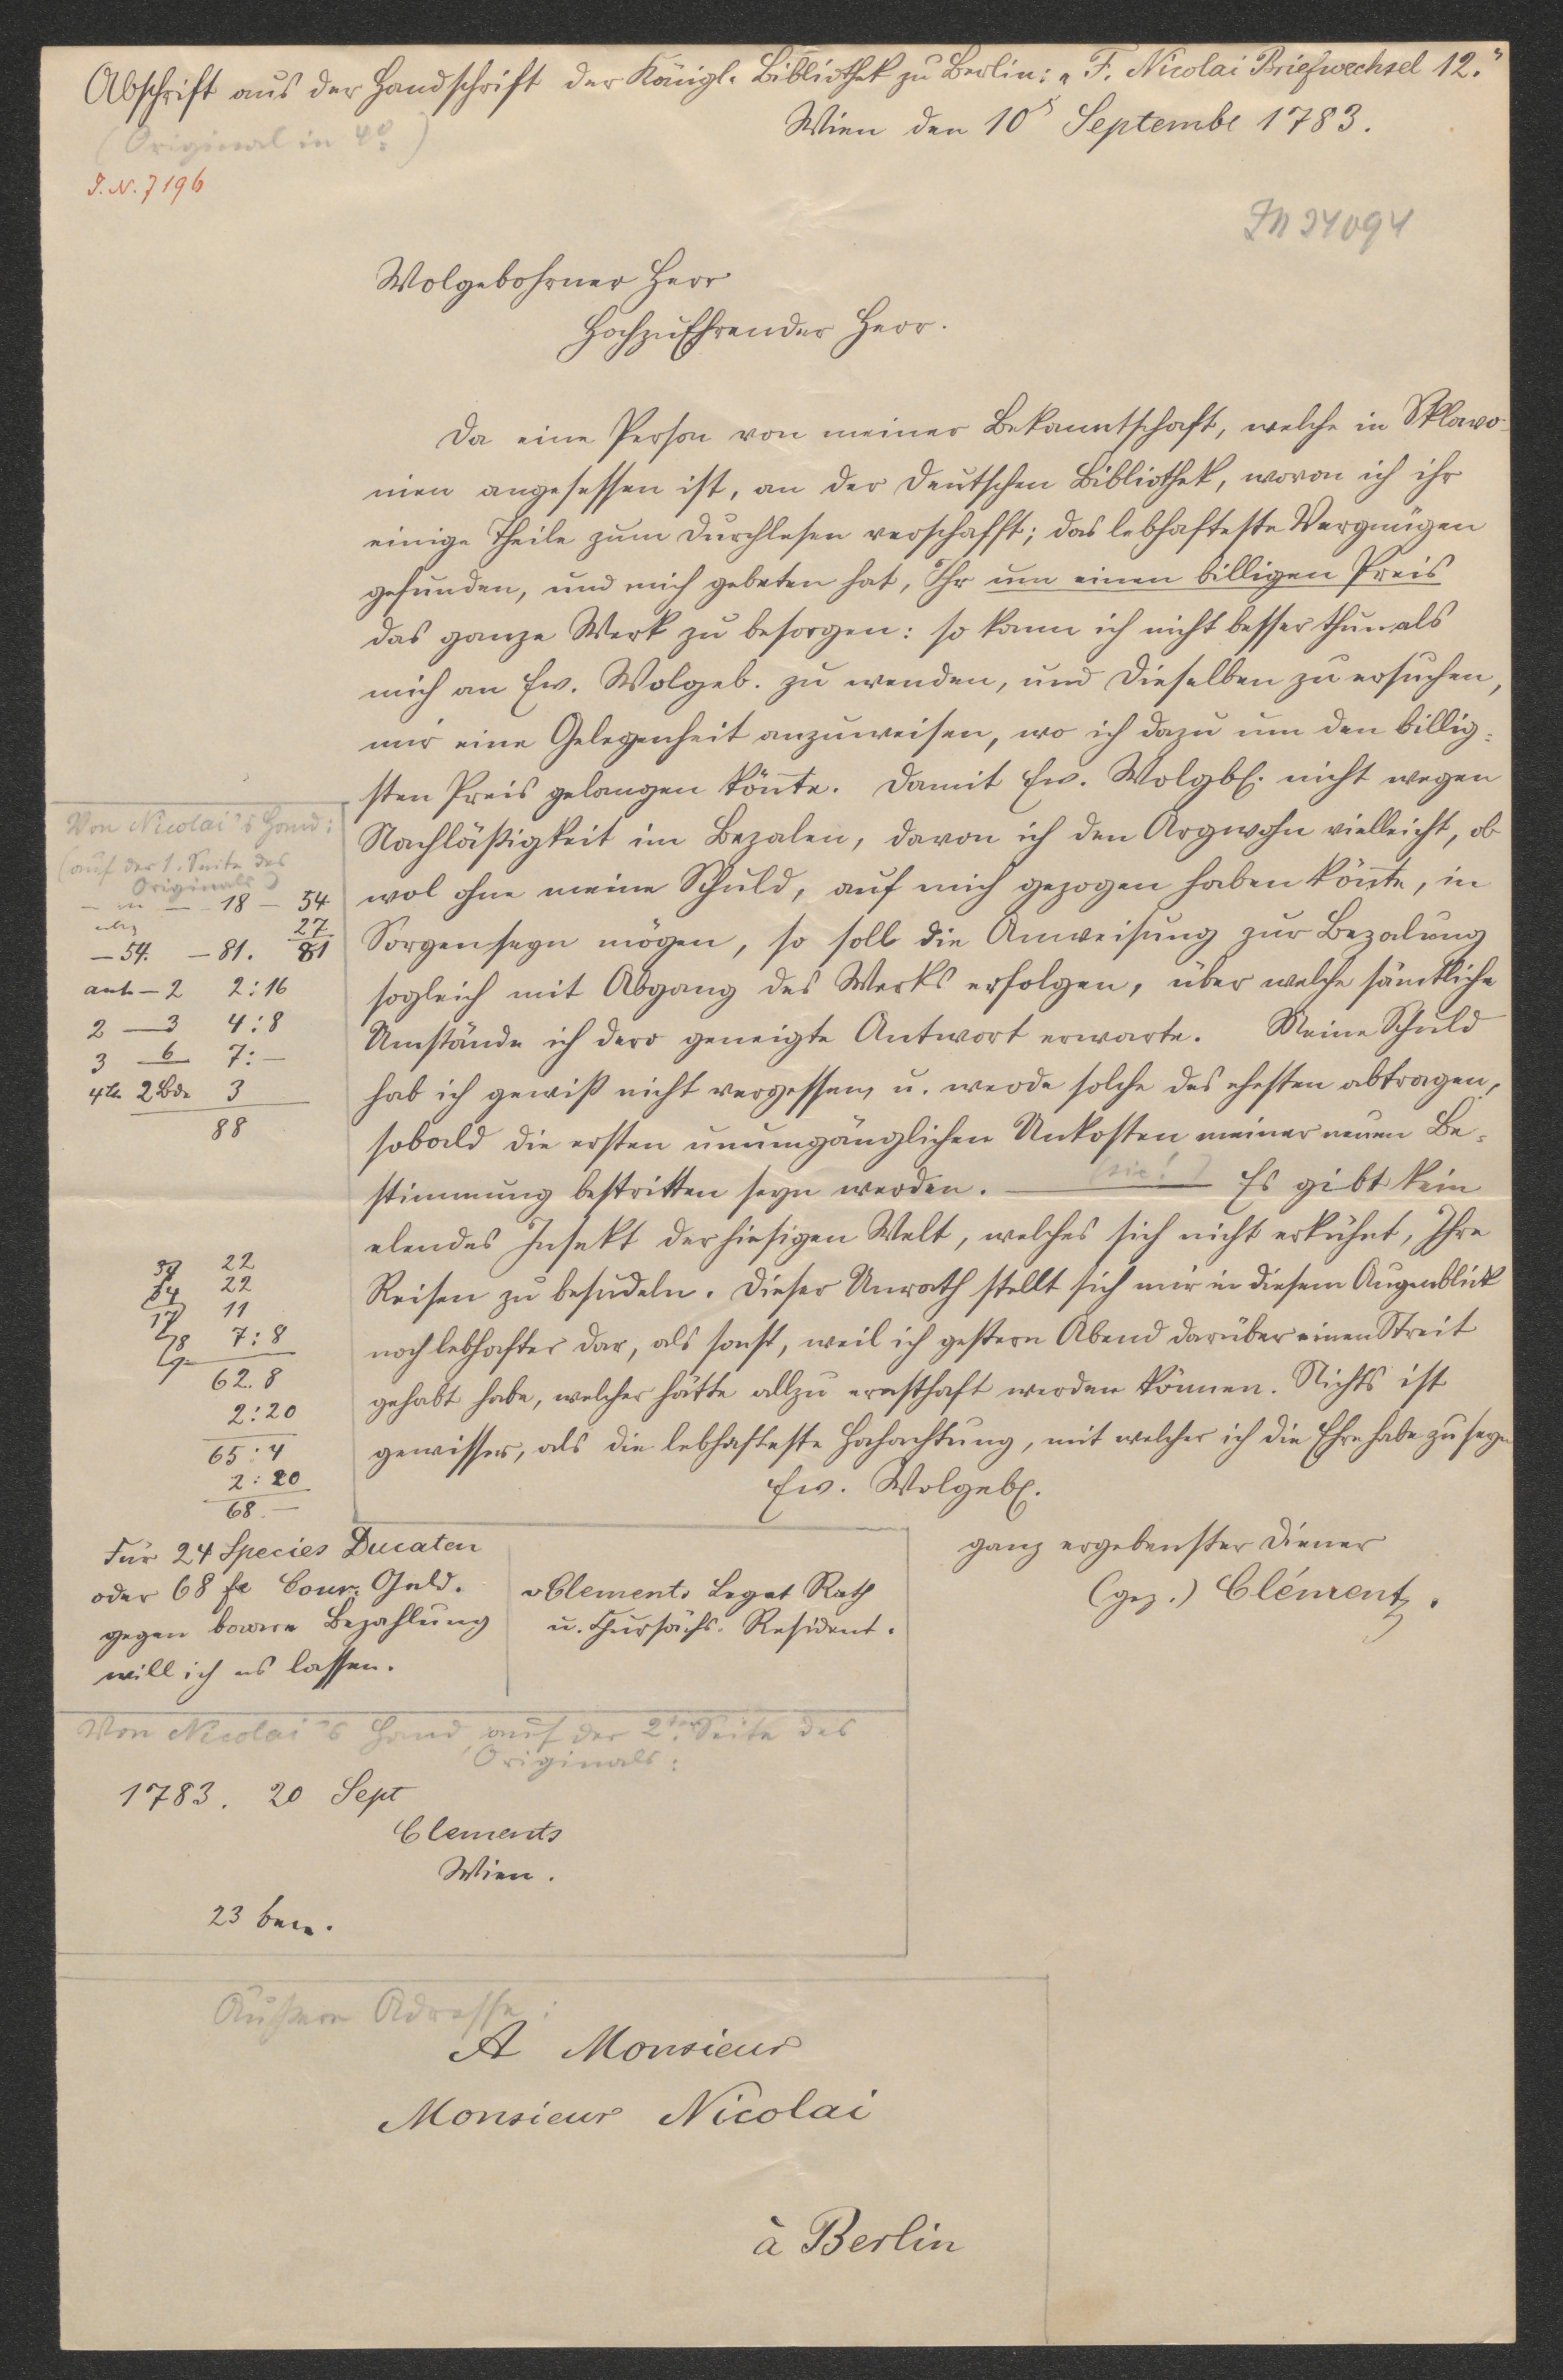 Abschrift aus der Handschrift der Königl. Bibliothek zu Berlin: „F. Nicolai Briefwechsel 12."
(Original in 4°.)
Wien den 10 Septembe 1783.
I.N. 7196
IN 34094
Wolgebohrner Herr
HochzuEhrender Herr.
Da eine Person von meiner Bekanntschaft, welche in Sklavo-
nien angesessen ist, an der deutschen Bibliothek, wovon ich ihr
einige Theile zum Durchlesen verschafft; das lebhafteste Vergnügen
gefunden, und mich gebeten hat, Ihr um einen billigen Preis
das ganze Werk zu besorgen: so kann ich nicht besser thun als
mich an Ew. Wolgeb. zu wenden, und dieselben zu ersuchen,
mir eine Gelegenheit anzuweisen, wo ich dazu um den billig-
sten Preis gelangen kön̄te. Damit Ew. Wolgb. nicht wegen
Nachläßigkeit im Bezalen, davon ich den Argwohn vielleicht, ob
wol ohne meine Schuld, auf mich gezogen haben kön̄te, in
Sorgen seyn mögen, so soll die Anweisung zur Bezalung
sogleich mit Abgang des Werks erfolgen, über welche sämtliche
Umstände ich dero geneigte Antwort erwarte. Meine Schuld
hab ich gewiß nicht vergessen, u. werde solche des ehesten abtragen,
sobald die ersten unumgänglichen Unkosten meiner neuen Be-
stimmung bestritten seyn werden. — (sic!) Es gibt kein
elendes Insekt der hiesigen Welt, welches sich nicht erkühnt, Ihre
Reisen zu besudeln. Dieser Unrath stellt sich mir in diesem Augenblick
noch lebhafter dar, als sonst, weil ich gestern Abend darüber einen Streit
gehabt habe, welcher hätte allzu ernsthaft werden können. Nichts ist
gewisser, als die lebhafteste Hochachtung, mit welcher ich die Ehre habe zu seyn
Ew. Wolgeb.
ganz ergebenster Diener
(gez.) Clément.
Von Nicolai's Hand:
(auf der 1. Seite des
Originals)
18 — 54
27
— 54. — 81. 81
anh — 2 2:16
2 — 3 4:8
3 6 7:—
4te 2 Bde 3
88
22
22
11
7:8
62.8
2:20
65:4
2:20
68.—
Für 24 Species Ducaten
oder 68 Cour. Geld.
gegen baare Bezahlung
will ich es lassen.
v Clements Legat Rath
u. Chursächs. Resident.
Von Nicolai's Hand, auf der 2ten Seite des
Originals:
1783. 20 Sept
Clements
Wien.
23
Äußere Adresse:
A Monsieur
Monsieur Nicolai
à Berlin